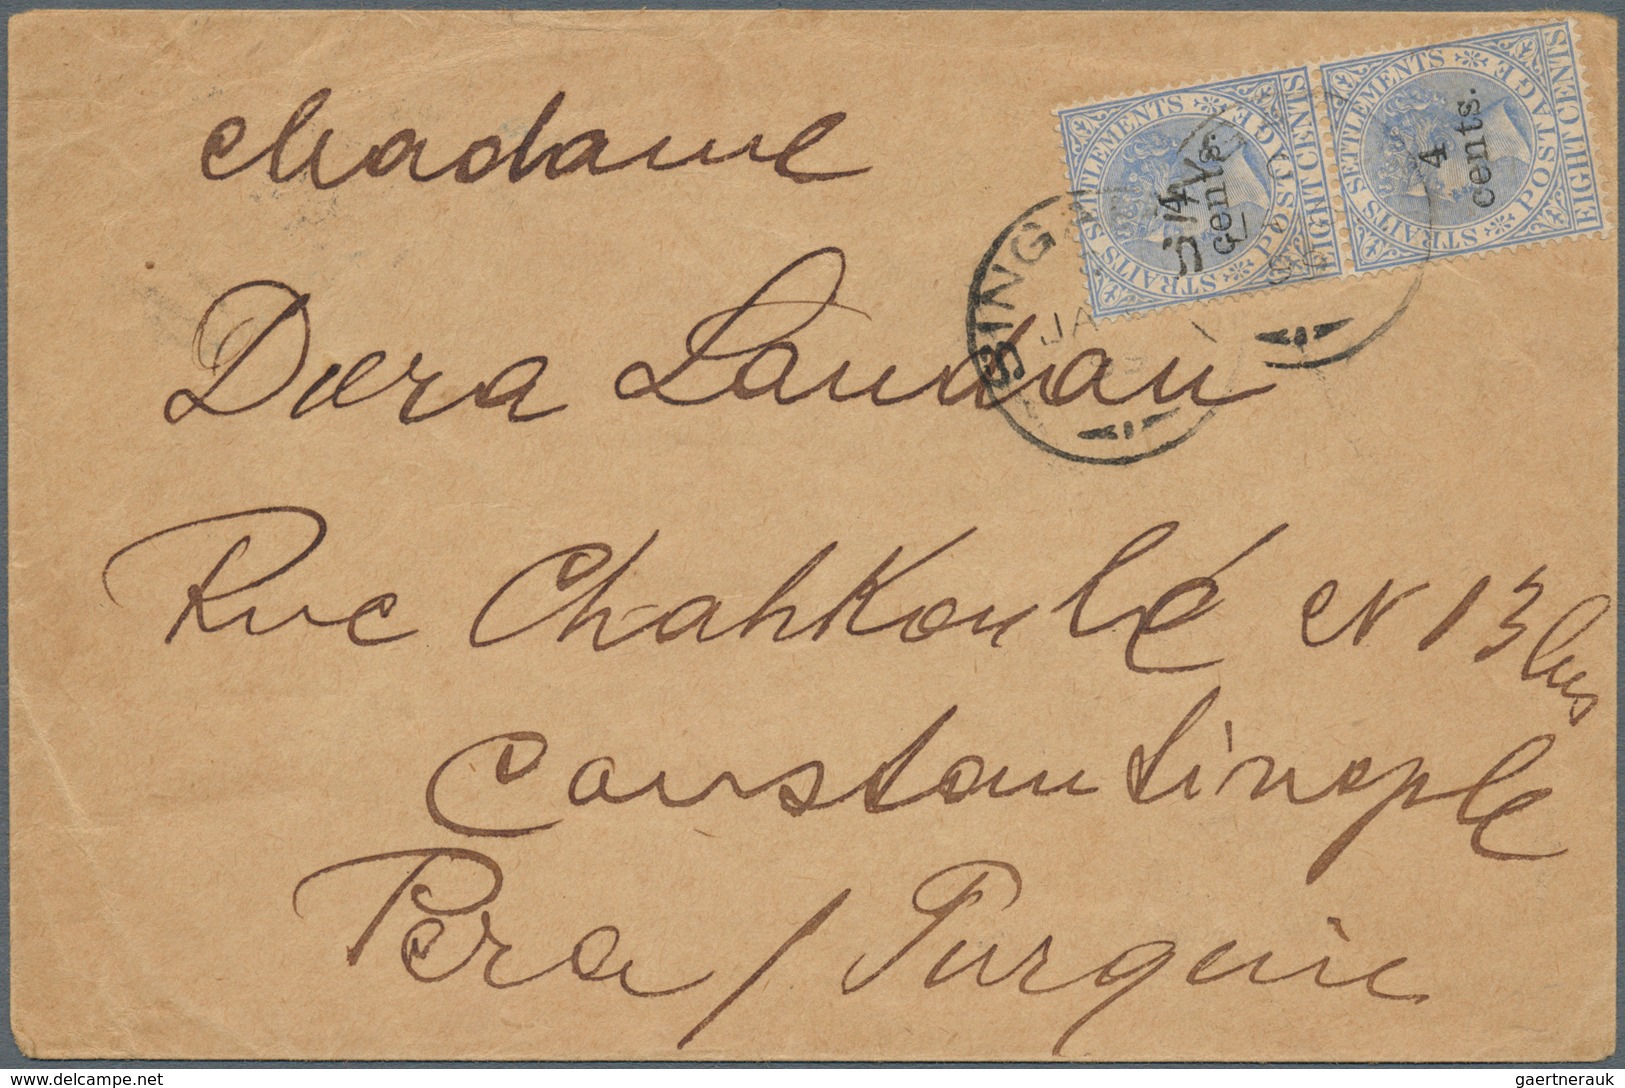 Madame
Dora Landau
Rue Chahkoulé N 13 bis
Constantinople
Pera / Turquie
STRAITS SETTLEMENTS POSTAGE
EIGHT CENTS
4
cents.
STRAITS SETTLEMENTS POSTAGE
EIGHT CENTS
4
cents.
SING
JA
delcampe.net
gaertnerauk